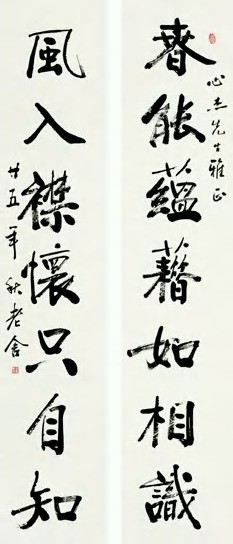 心杰先生雅正
春能蘊藉如相識
風入襟懷只自知
廿五年秋老舍